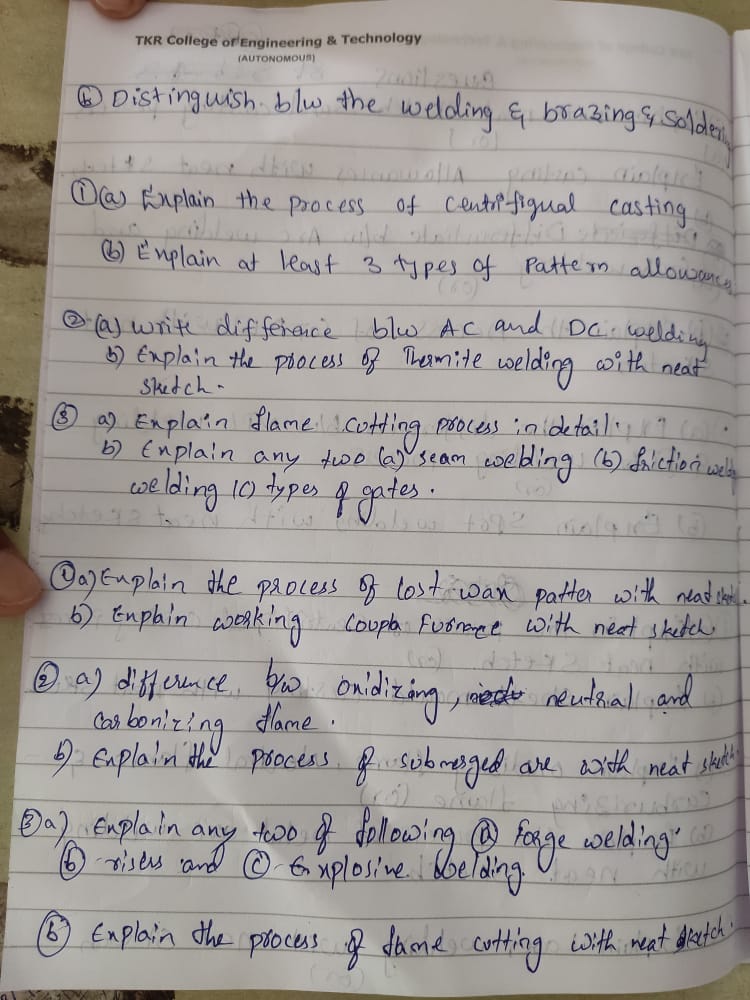 TKR College of Engineering & Technology
(AUTONOMOUS)
(b) Distinguish b/w the welding & brazing & soldering
① (a) Explain the process of centrifigual casting
(b) Explain at least 3 types of Pattern allowances
② (a) write difference b/w AC and DC. welding
b) Explain the process of Thermite welding with neat
sketch.
③ a) Explain flame cutting process in detail.
b) Explain any two (a) seam welding (b) friction weld
welding (c) types of gates.
① a) Explain the process of lost wax patter with neat sketch.
b) Explain working Coupla Furnace with neat sketch.
② a) difference b/w oxidizing, neutral and
carbonizing flame.
b) Explain the process of submerged are with neat sketch.
③ a) Explain any two of following ⓐ Forge welding.
ⓑ risers and ⓒ Explosive Welding.
ⓑ Explain the process of flame cutting with neat sketch.